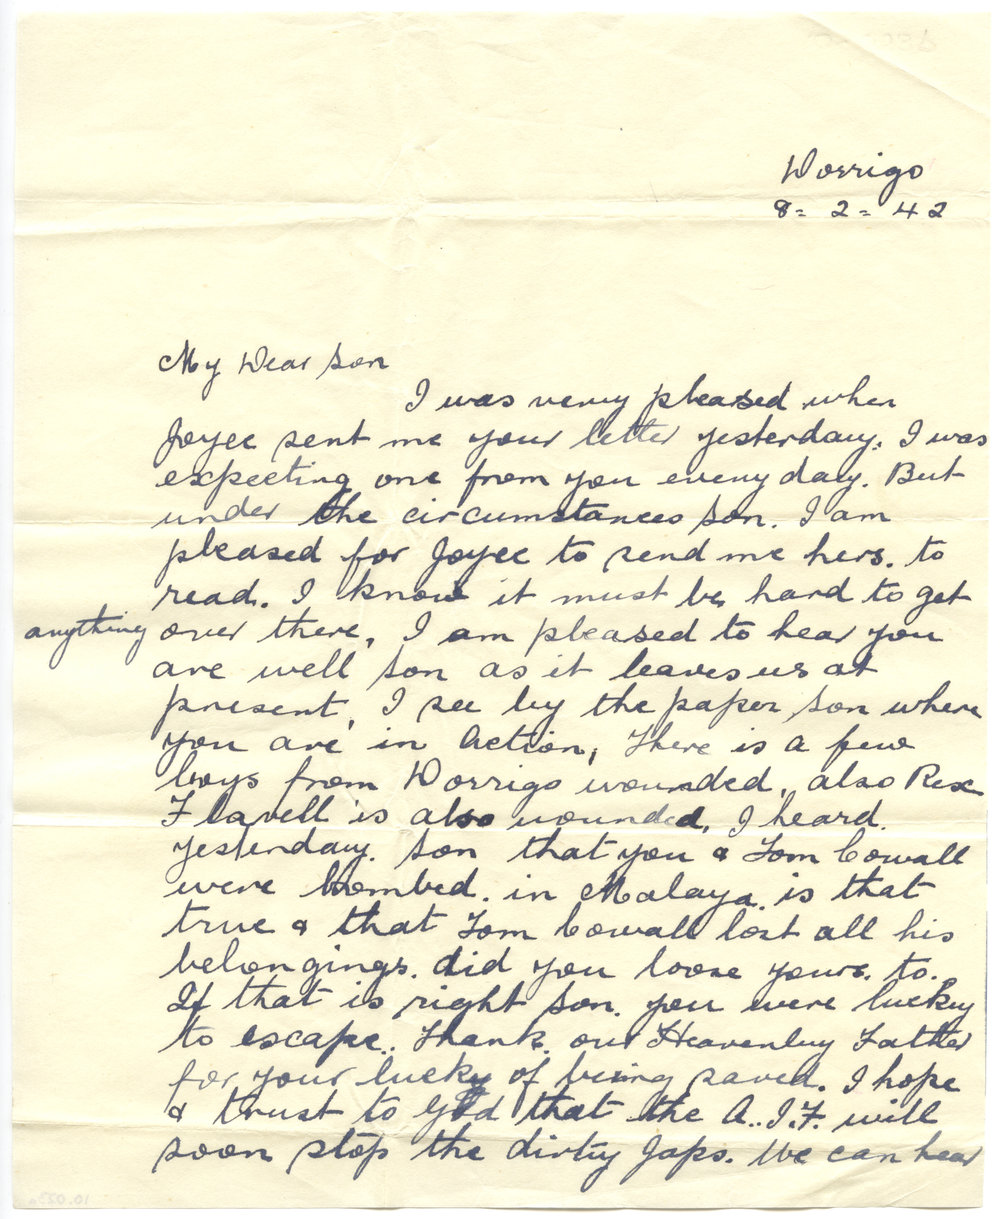 Dorrigo
8 = 2 = 42
My Dear Son
I was very pleased when
Joyce sent me your letter yesterday. I was
expecting one from you every day. But
under the circumstances Son. I am
pleased for Joyce to send me hers. to
read. I know it must be hard to get
anything over there, I am pleased to hear you
are well Son as it leaves us at
present, I see by the paper Son where
you are in Action, There is a few
boys from Dorrigo wounded, also Rex
Flavell is also wounded, I heard.
yesterday. Son that you & Tom Cowall
were bombed. in Malaya. is that
true & that Tom Cowall lost all his
belongings. did you loose yours. to.
If that is right Son. you were lucky
to escape.. Thank. our Heavenly Father
for your lucky of being saved. I hope
& trust to God that the A..I.F. will
soon stop the dirty Japs. We can hear